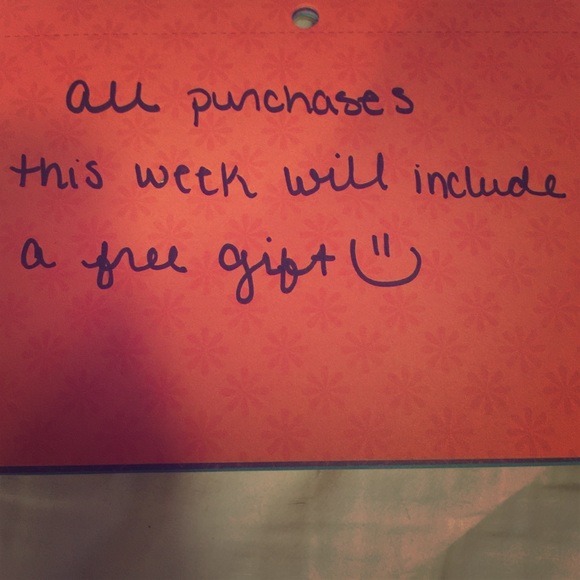 all purchases
this week will include
a free gift